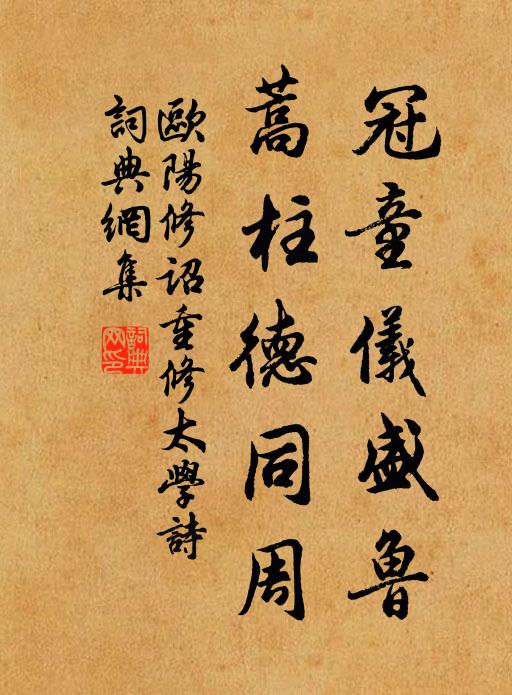 冠童儀盛魯
蒿柱德同周
歐陽修詔重修太學詩
詞典網集
詞典
网印